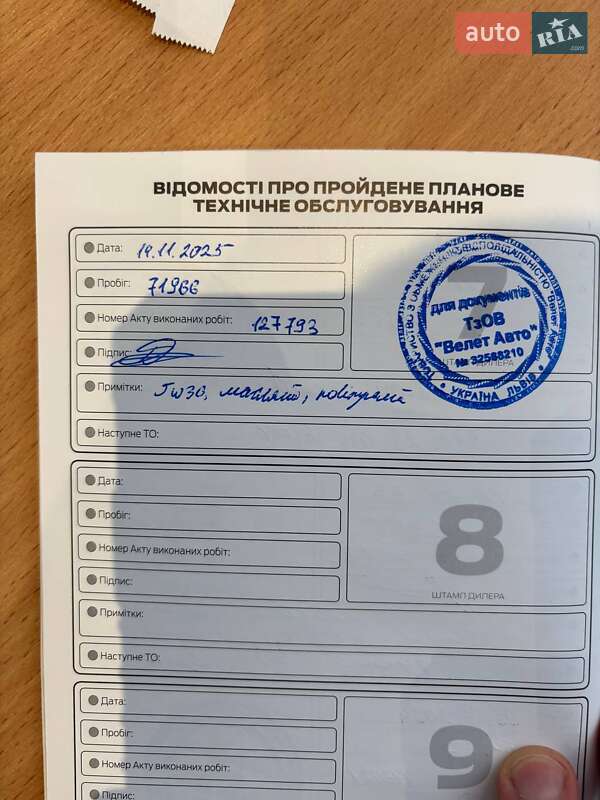 auto RIA .com
ВІДОМОСТІ ПРО ПРОЙДЕНЕ ПЛАНОВЕ
ТЕХНІЧНЕ ОБСЛУГОВУВАННЯ
Дата: 19.11.2025
Пробіг: 71966
Номер Акту виконаних робіт: 127793
Підпис:
7
ШТАМП ДИЛЕРА
для документів
ТзОВ
"Велет Авто"
№ 32568210
УКРАЇНА ЛЬВІВ
Примітки: 5w30, масляний, повітряний
Наступне ТО:
Дата:
Пробіг:
Номер Акту виконаних робіт:
Підпис:
8
ШТАМП ДИЛЕРА
Примітки:
Наступне ТО:
Дата:
Пробіг:
Номер Акту виконаних робіт:
Підпис:
9